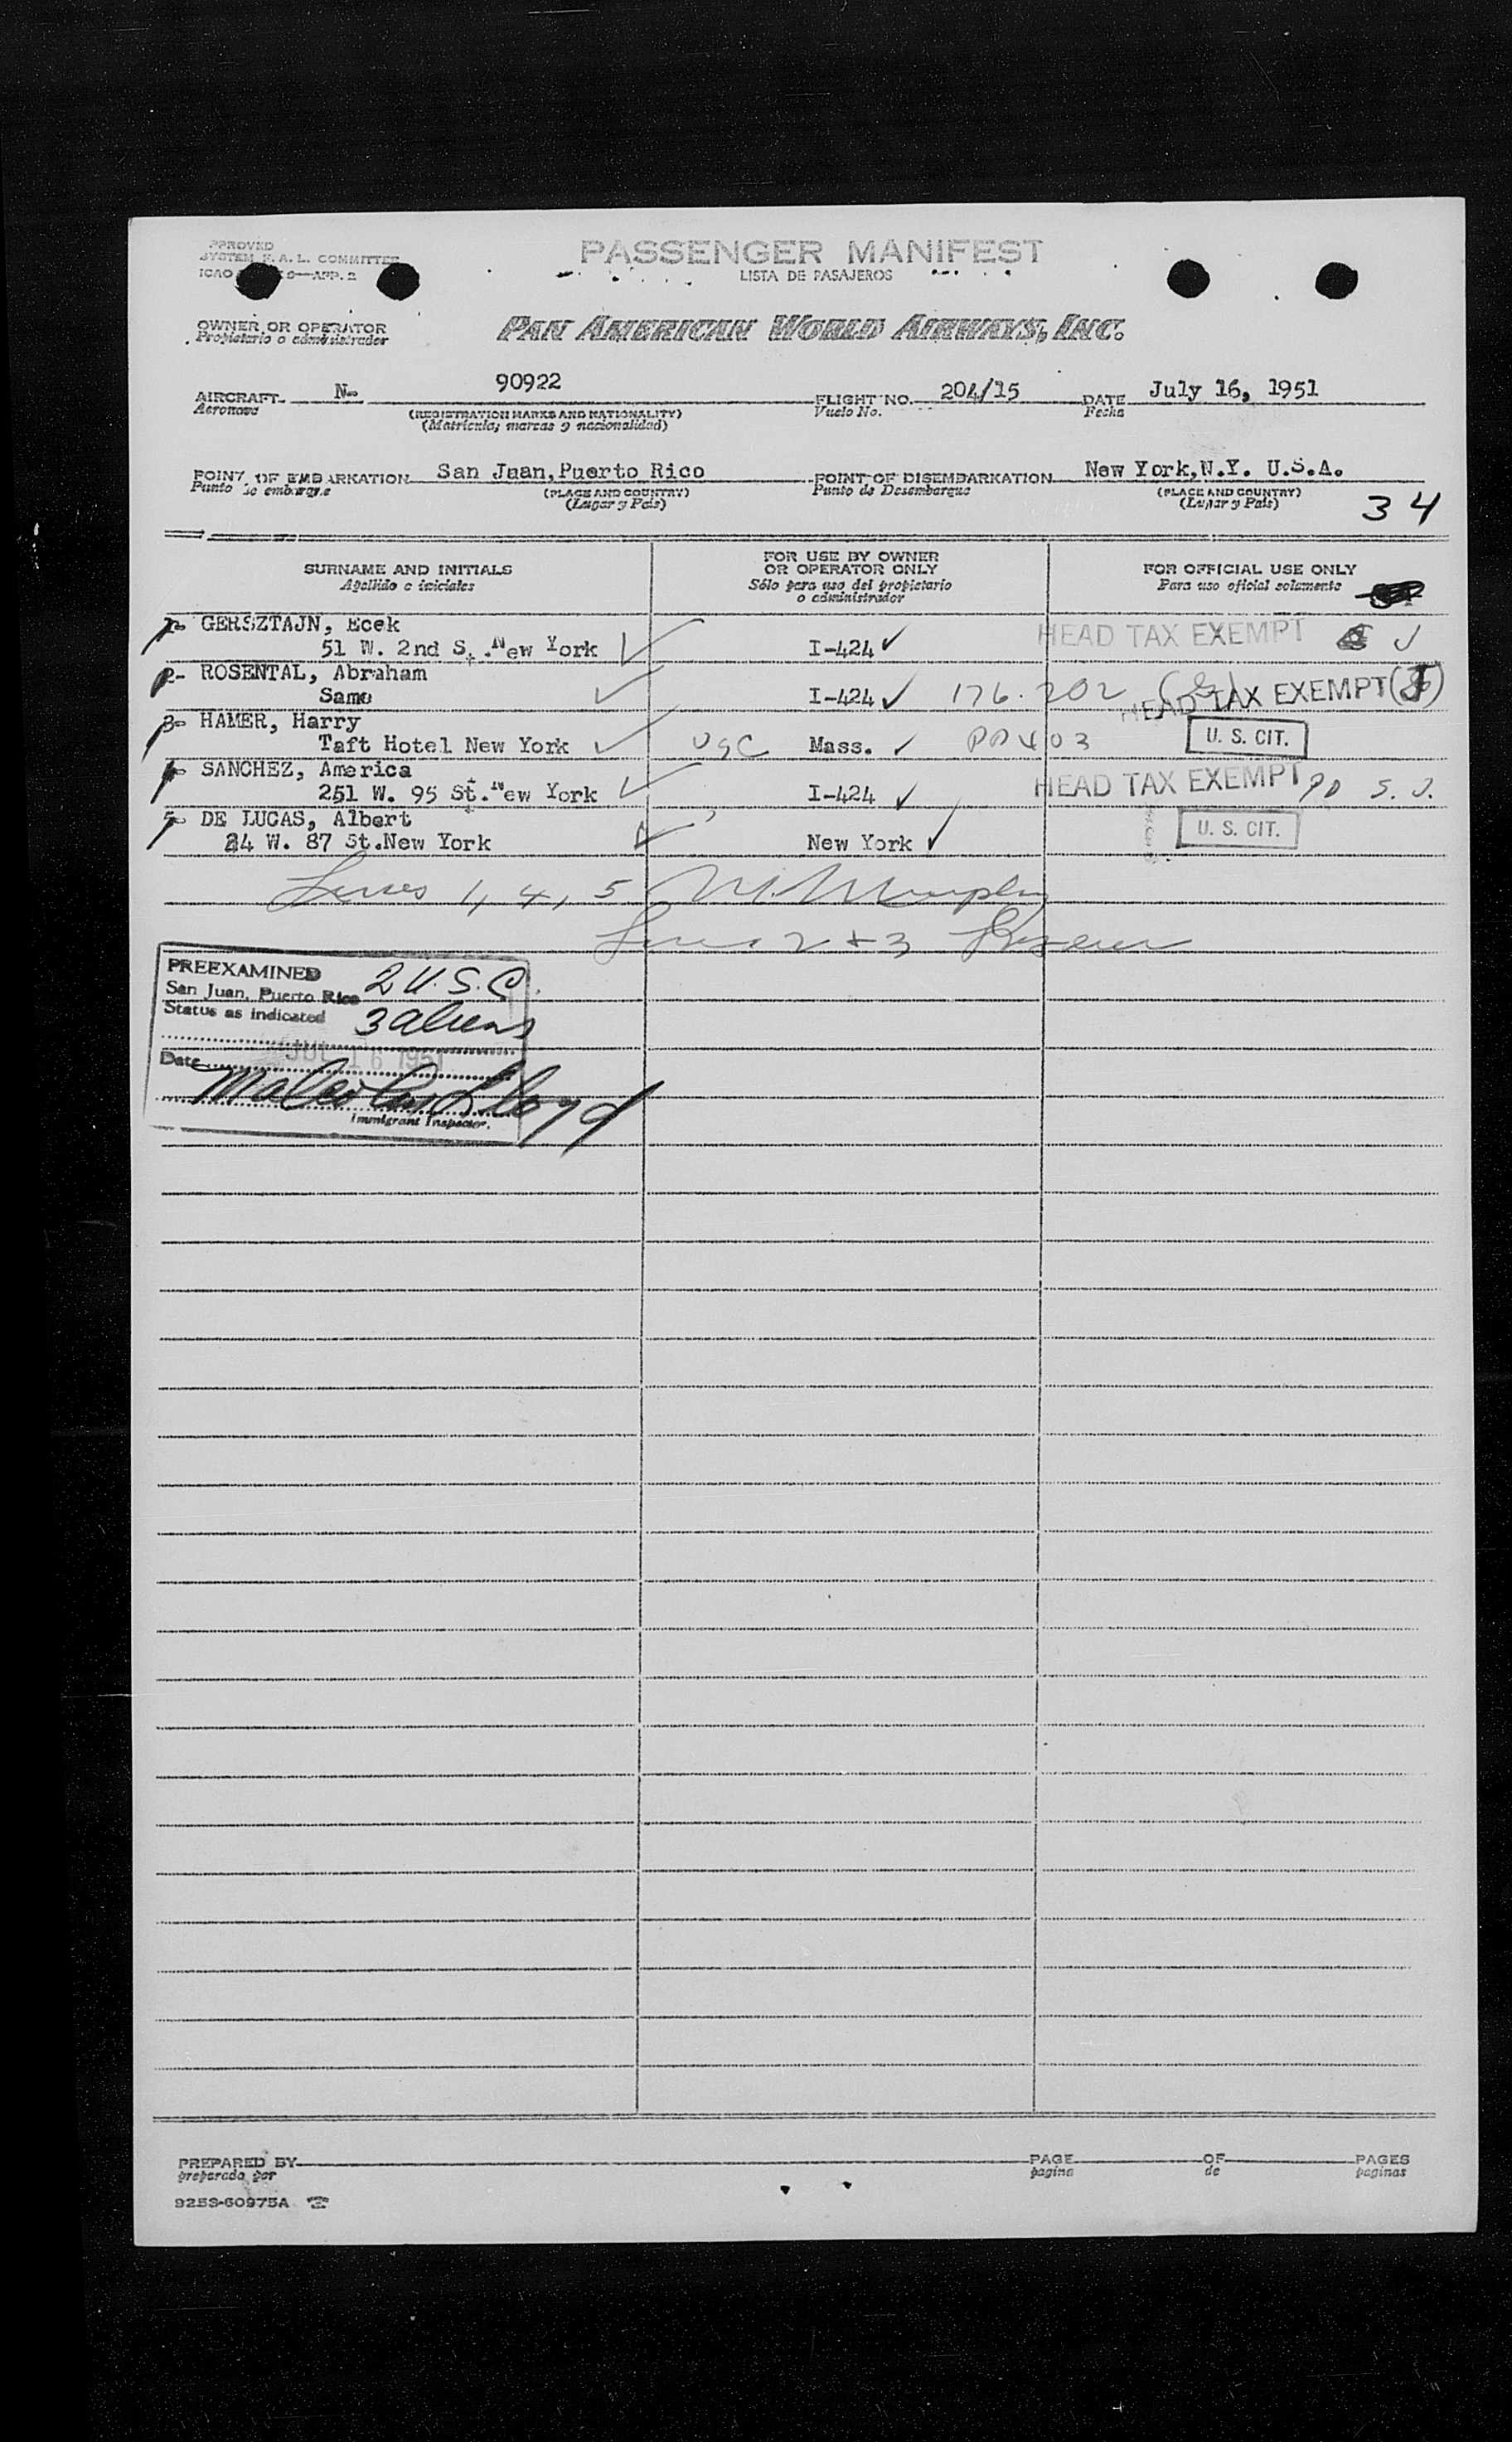 APPROVED
SYSTEM F. A. L. COMMITTEE
ICAO 9—APP. 2
PASSENGER MANIFEST
LISTA DE PASAJEROS
OWNER OR OPERATOR
Propietario o administrador
PAN AMERICAN WORLD AIRWAYS, INC.
AIRCRAFT N- 90922 FLIGHT NO. 204/15 DATE July 16, 1951
Aeronave (REGISTRATION MARKS AND NATIONALITY) Vuelo No. Fecha
(Matricula, marcas y nacionalidad)
POINT OF EMBARKATION San Juan, Puerto Rico POINT OF DISEMBARKATION New York, N.Y. U.S.A.
Punto de embarque (PLACE AND COUNTRY) Punto de Desembarque (PLACE AND COUNTRY)
(Lugar y Pais) (Lugar y Pais)
34
SURNAME AND INITIALS FOR USE BY OWNER OR OPERATOR ONLY FOR OFFICIAL USE ONLY
Apellido e iniciales Sólo para uso del propietario o administrador Para uso oficial solamente
1- GERSZTAJN, Ecek
51 W. 2nd S. New York I-424 HEAD TAX EXEMPT
2- ROSENTAL, Abraham
Same I-424 176.202 HEAD TAX EXEMPT
3- HAMER, Harry
Taft Hotel New York USC Mass. PP 403 U. S. CIT.
4- SANCHEZ, America
251 W. 95 St. New York I-424 HEAD TAX EXEMPT PD S. J.
5- DE LUCAS, Albert
24 W. 87 St. New York New York U. S. CIT.
Lines 1, 4, 5 M. Murphy
Lines 2 + 3
PREEXAMINED
San Juan, Puerto Rico 2 U.S.C.
Status as indicated 3 aliens
Date JUL 16 1951
Malcolm Lloyd
Immigrant Inspector.
PREPARED BY PAGE OF PAGES
preparado por pagina de paginas
9253-60975A